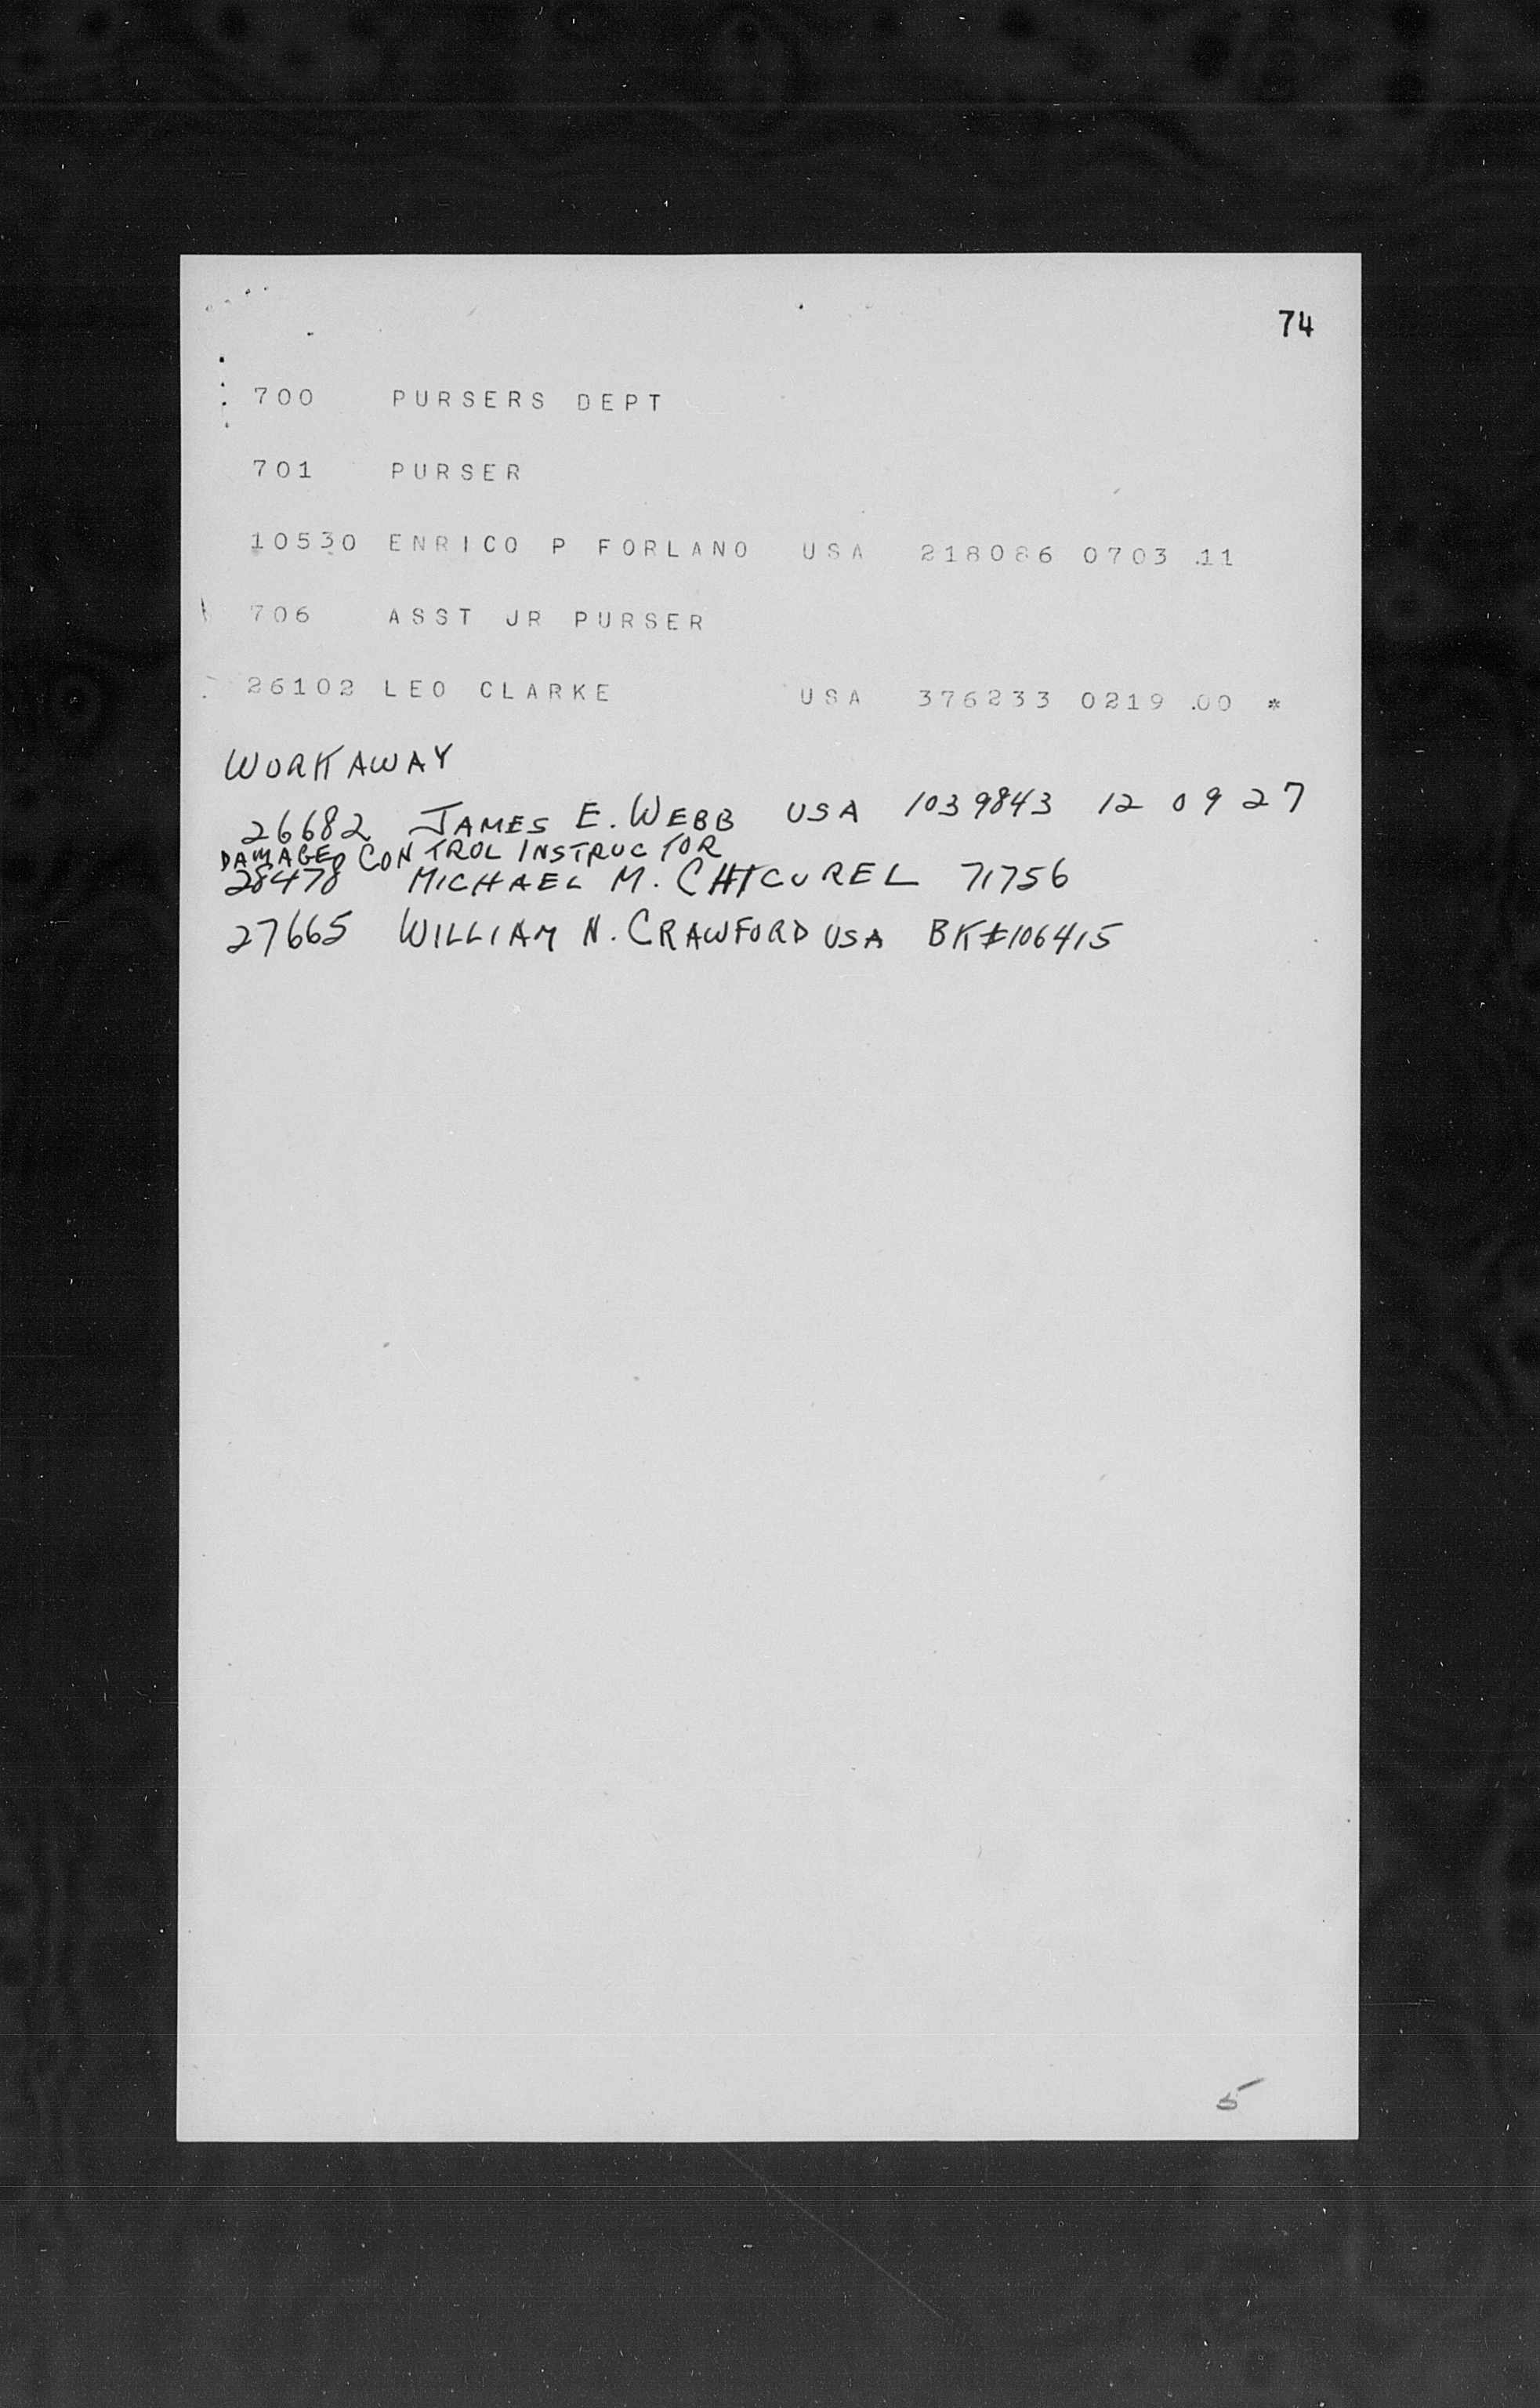 74
700 PURSERS DEPT
701 PURSER
10530 ENRICO P FORLANO USA 218086 0703 .11
706 ASST JR PURSER
26102 LEO CLARKE USA 376233 0219 .00 *
WORKAWAY
26682 JAMES E. WEBB USA 1039843 12 09 27
DAMAGE CONTROL INSTRUCTOR
28478 MICHAEL M. CHICUREL 71756
27665 WILLIAM N. CRAWFORD USA BK#106415
5